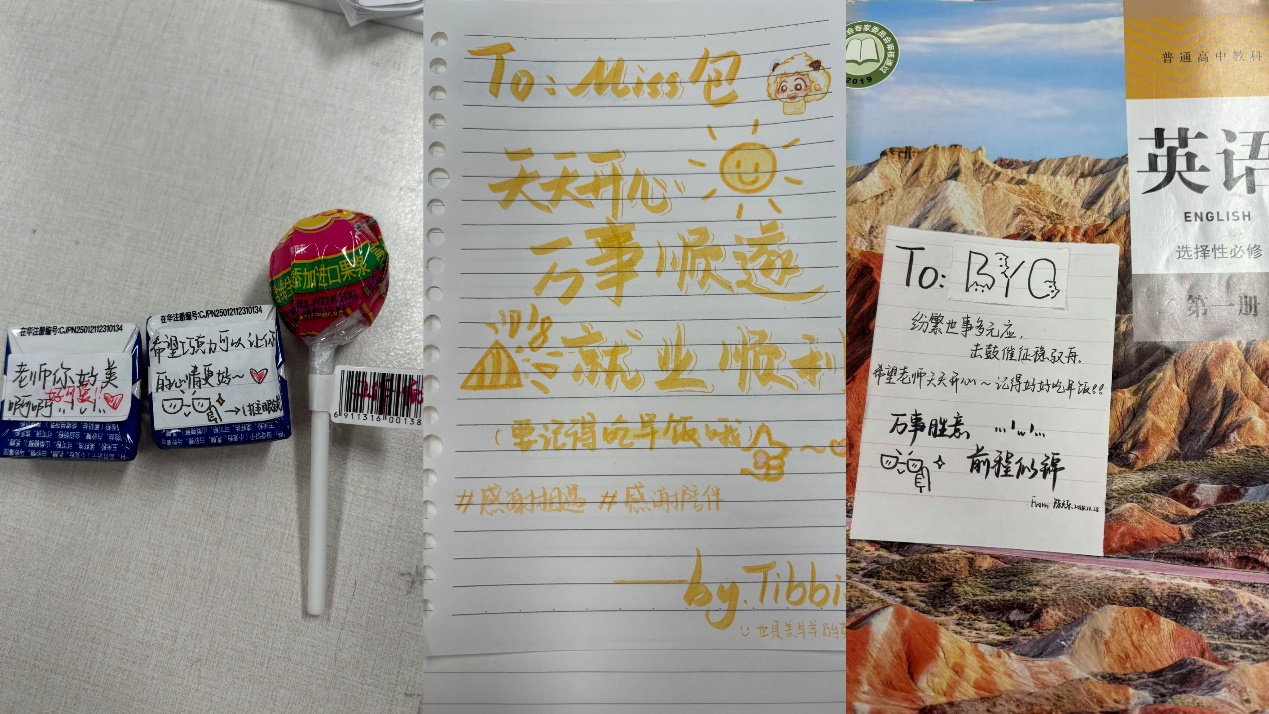 在华注册编号:CJPN25012112310134
老师你好美
啊啊
好喜
在华注册编号:CJPN25012112310134
希望巧克力可以让你
的心情更好~
添加进口果浆
6 911316 00138
To: Miss 包
天天开心
万事顺遂
就业顺利
(要记得吃早饭哦)
#感谢相遇 #感谢陪伴
——by. Tibbi
2019
普通高中教科
英语
ENGLISH
选择性必修
第一册
To: BYQ
纷繁世事多元应,
击鼓催征稳驭舟。
希望老师天天开心~记得好好吃早饭!!
万事胜意
前程似锦
From